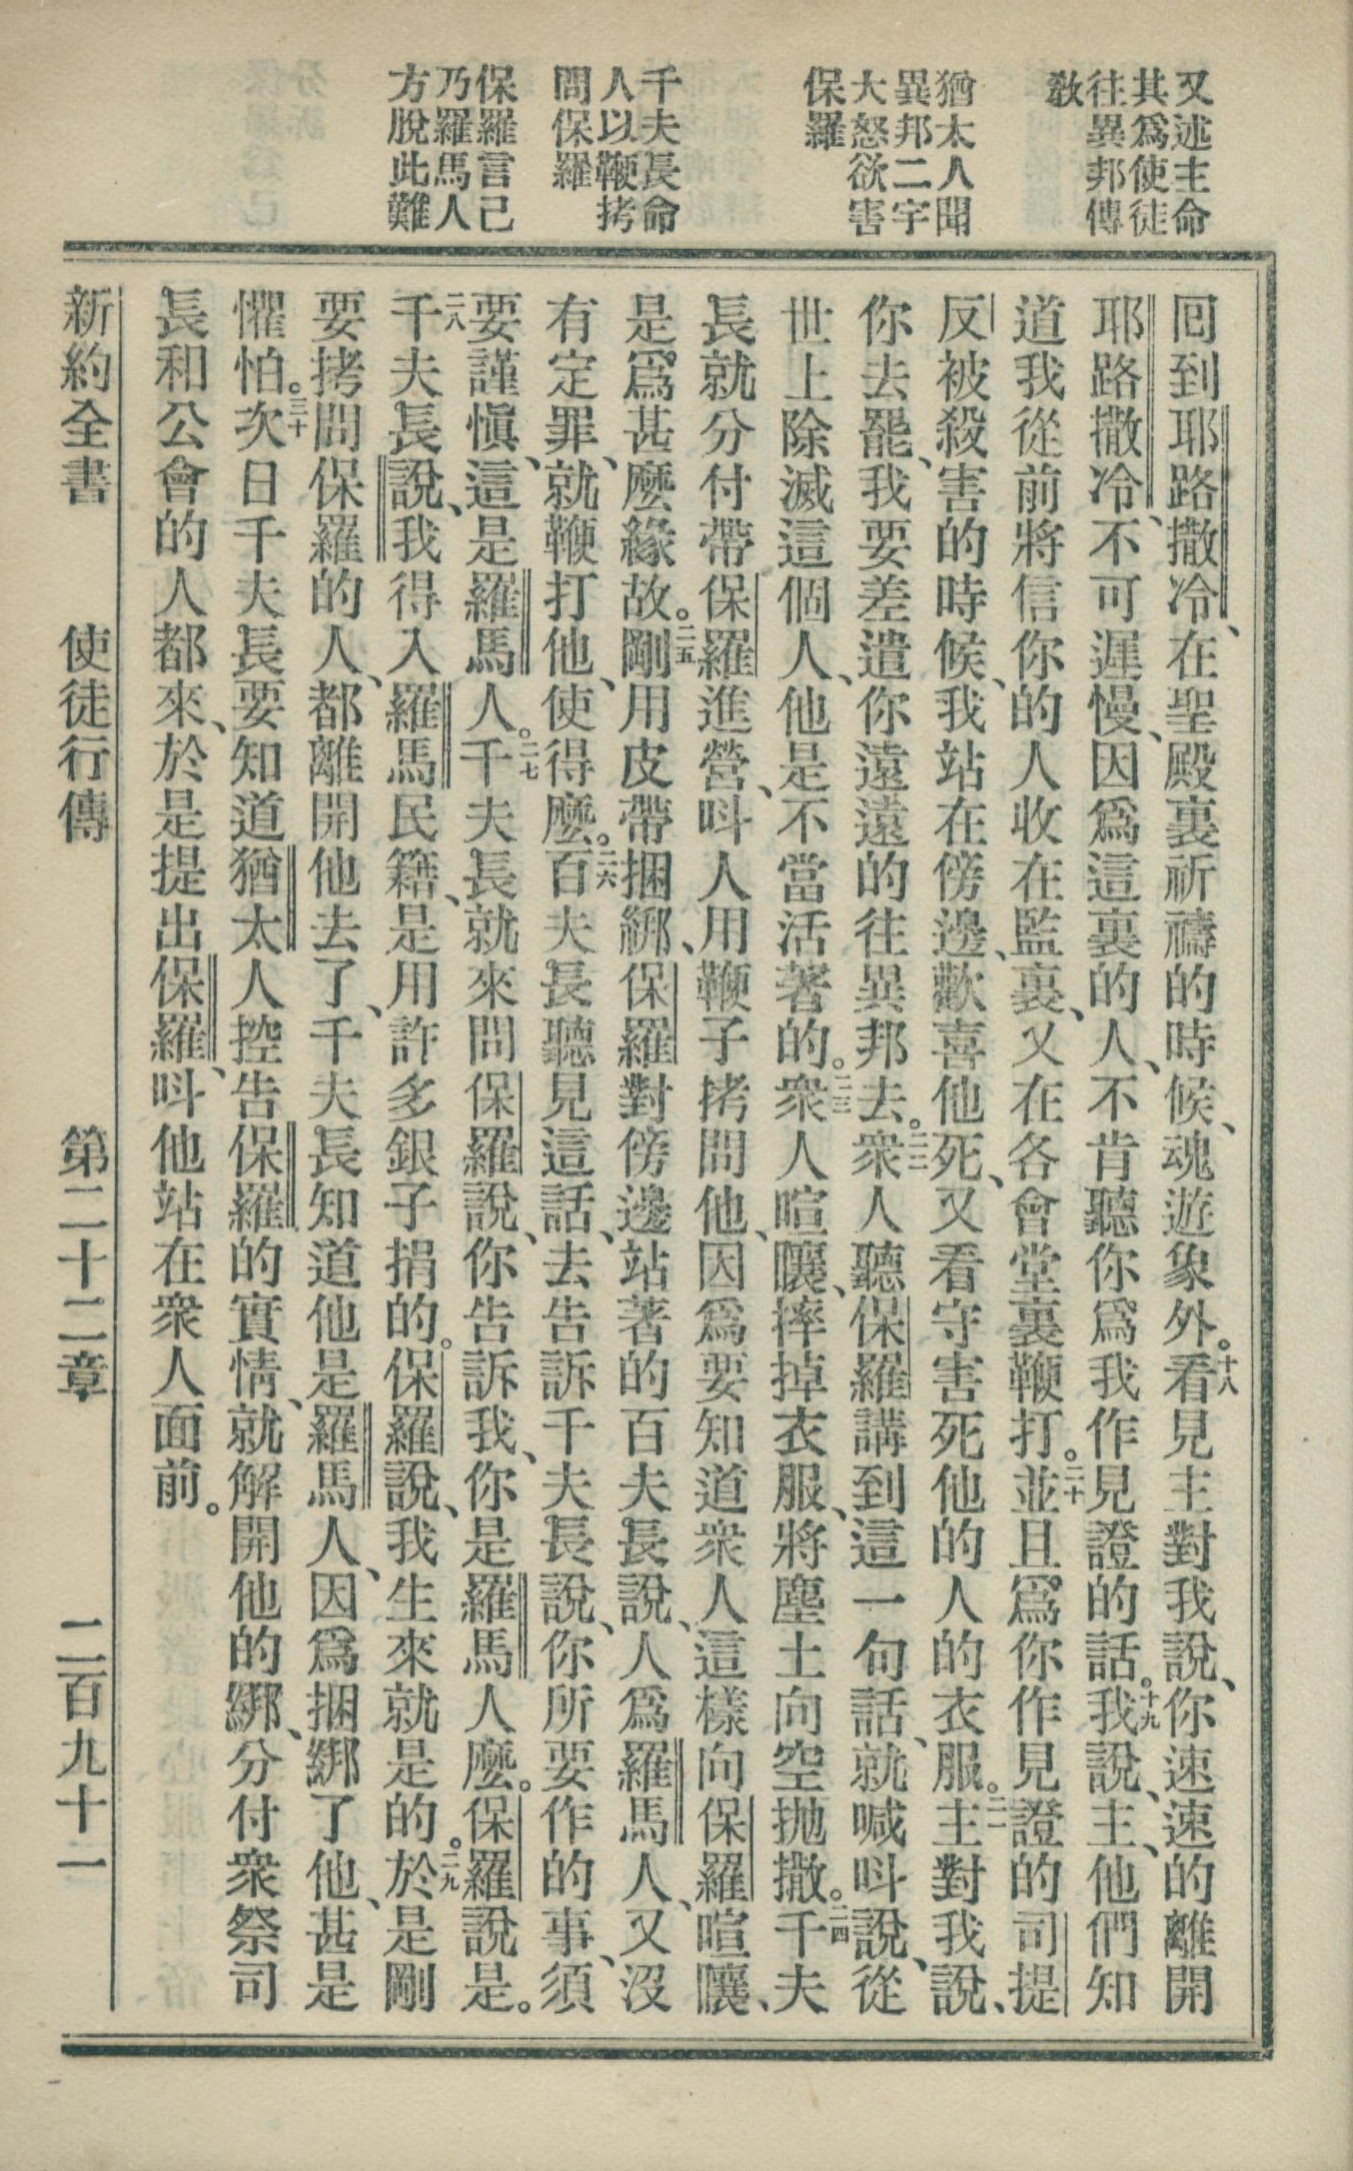 又述主命
其爲使徒
往異邦傳
敎
猶太人聞
異邦二字
大怒欲害
保羅
千夫長命
人以鞭拷
問保羅
保羅言己
乃羅馬人
方脫此難
回到耶路撒冷、在聖殿裏祈禱的時候、魂遊象外。十八看見主對我說、你速速的離開
耶路撒冷、不可遲慢、因爲這裏的人、不肯聽你爲我作見證的話。十九我說、主、他們知
道我從前將信你的人收在監裏、又在各會堂裏鞭打。二十並且爲你作見證的司提
反被殺害的時候、我站在傍邊、歡喜他死、又看守害死他的人的衣服。二一主對我說、
你去罷、我要差遣你遠遠的往異邦去。二二衆人聽保羅講到這一句話、就喊呌說、從
世上除滅這個人、他是不當活著的。二三衆人喧嚷、摔掉衣服、將塵土向空抛撒。二四千夫
長就分付帶保羅進營、呌人用鞭子拷問他、因爲要知道衆人這樣向保羅喧嚷、
是爲甚麽緣故。二五剛用皮帶捆綁、保羅對傍邊站著的百夫長說、人爲羅馬人、又沒
有定罪、就鞭打他、使得麽。二六百夫長聽見這話、去告訴千夫長說、你所要作的事、須
要謹愼、這是羅馬人。二七千夫長就來問保羅說、你告訴我、你是羅馬人麽。保羅說是。
二八千夫長說、我得入羅馬民籍、是用許多銀子捐的。保羅說、我生來就是的。二九於是剛
要拷問保羅的人、都離開他去了、千夫長知道他是羅馬人、因爲捆綁了他、甚是
懼怕。三十次日千夫長要知道猶太人控告保羅的實情、就解開他的綁、分付衆祭司
長和公會的人都來、於是提出保羅、呌他站在衆人面前。
新約全書 使徒行傳 第二十二章 二百九十一